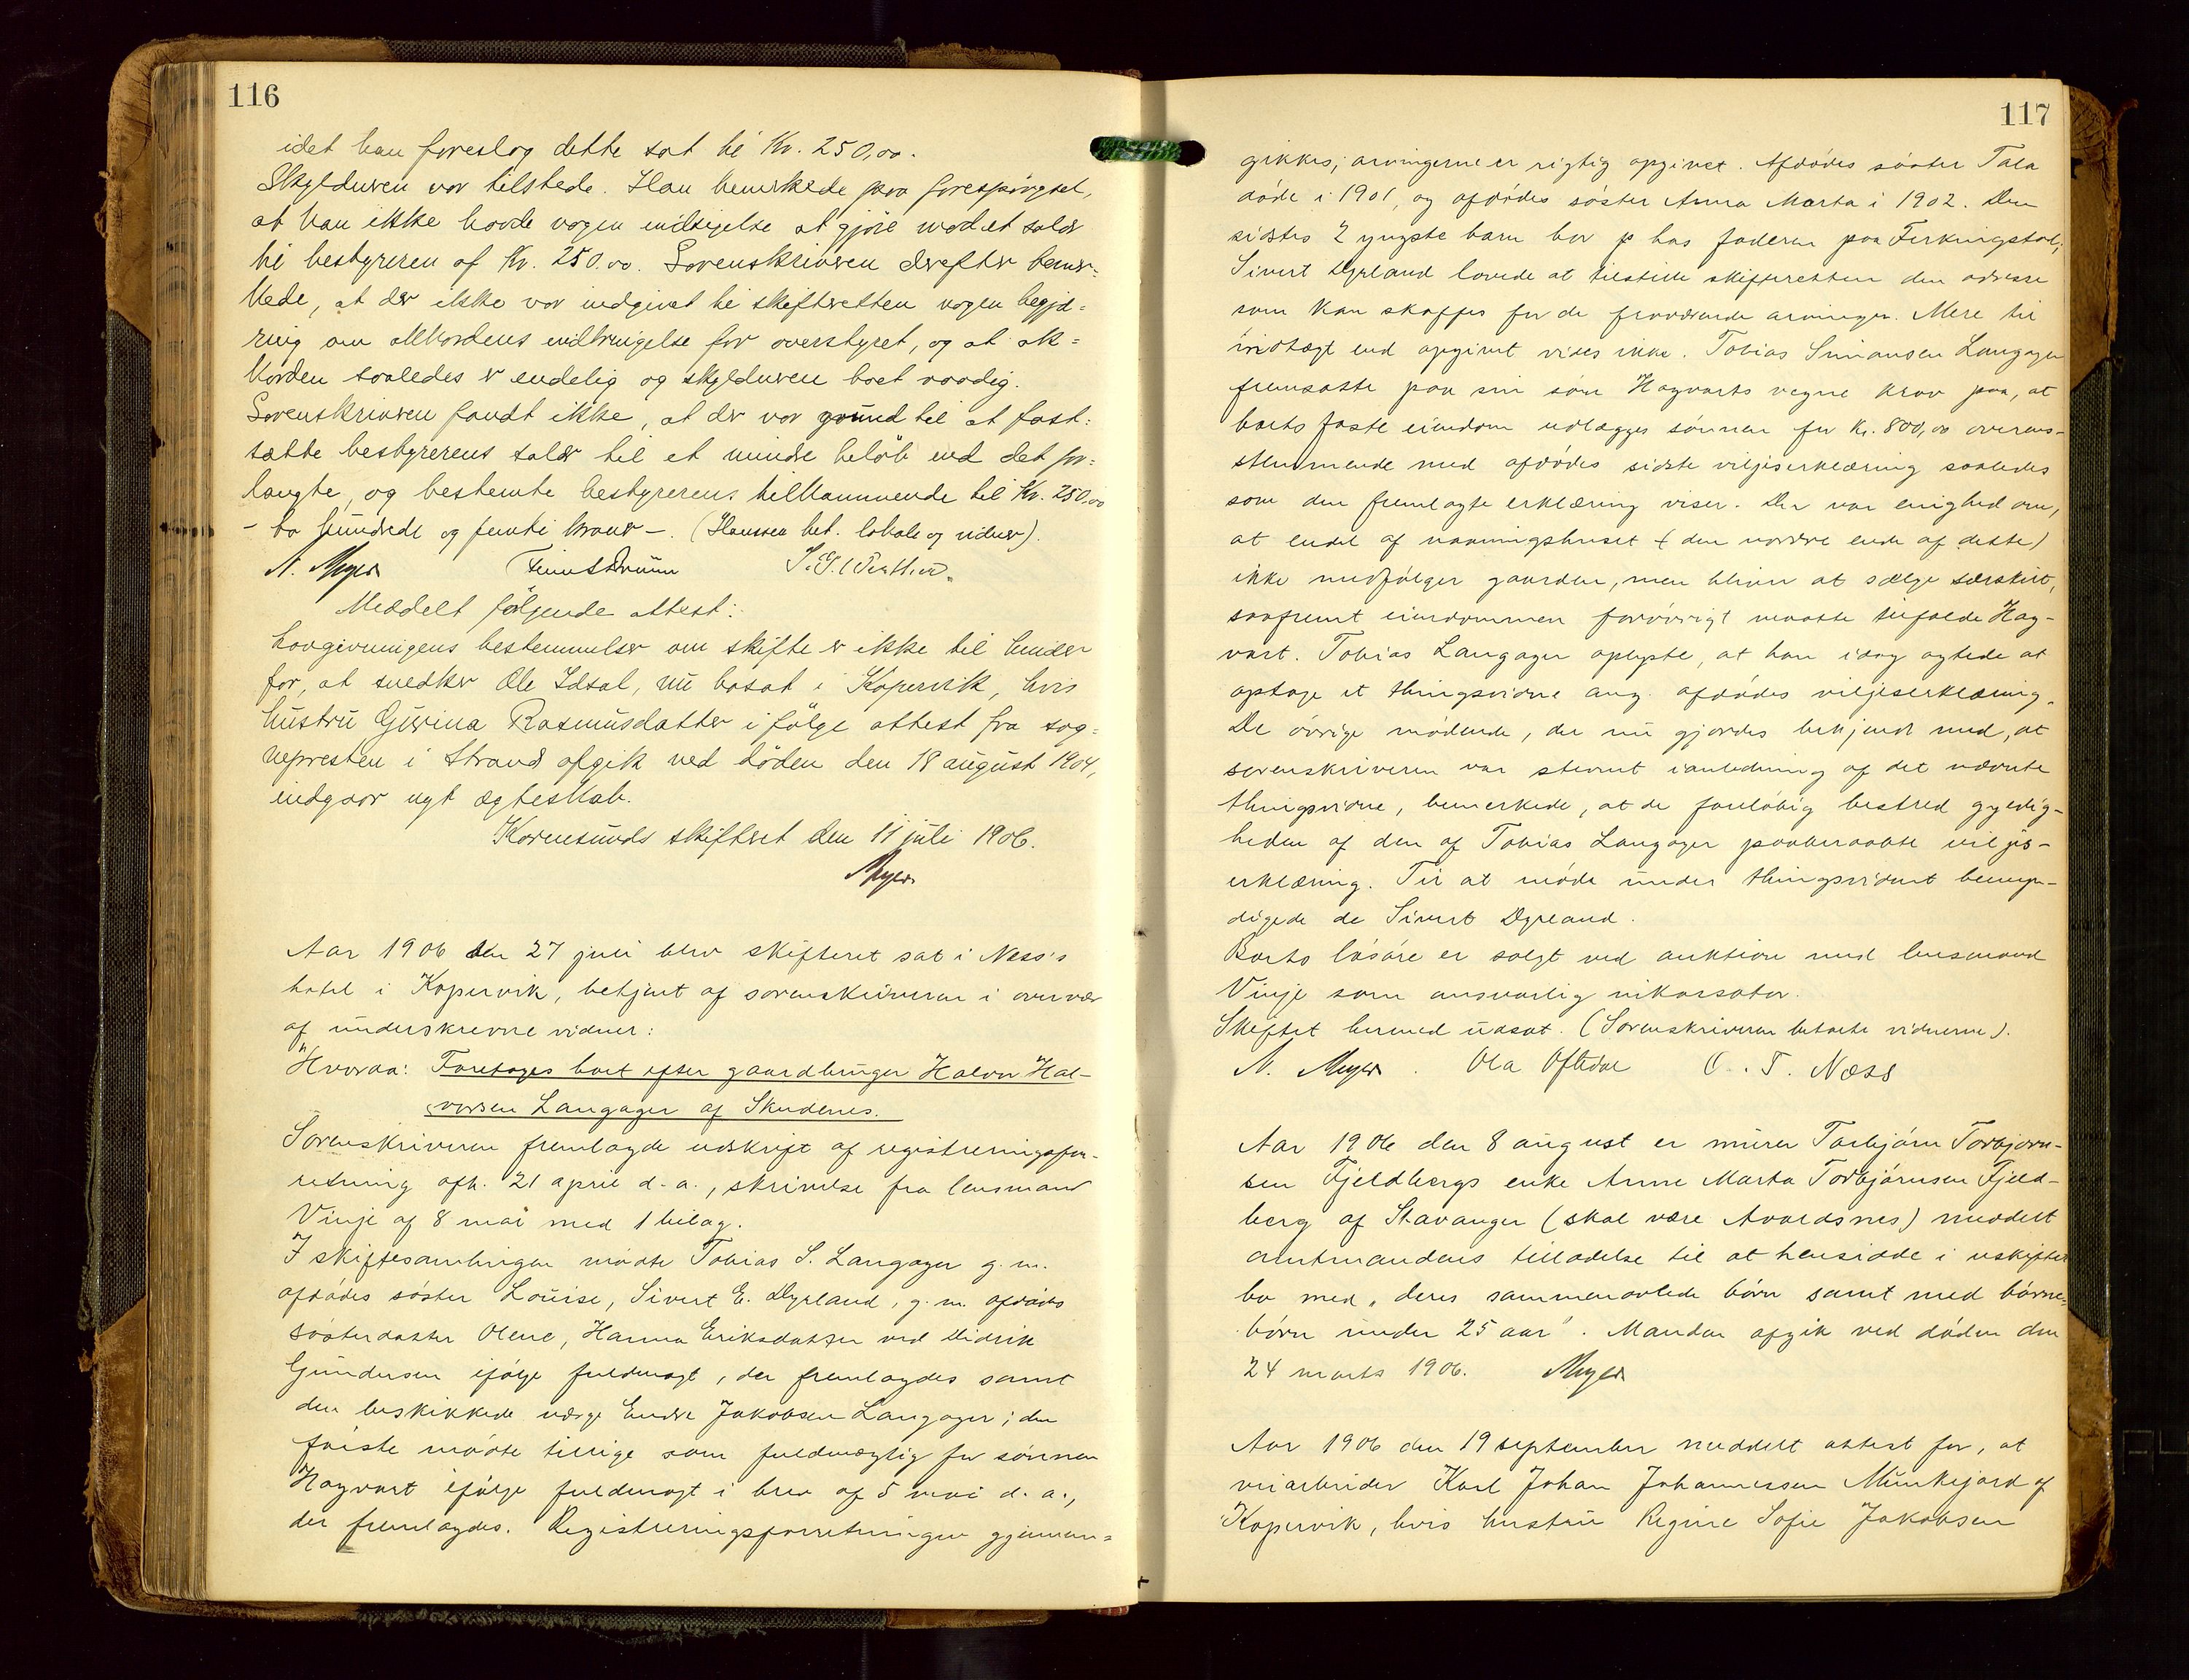 116
idet han foreslog dette sat til Kr. 250,00.
Skylderen var tilstede. Han bemerkede paa forespørgsel,
at han ikke havde nogen indsigelse at gjøre mod et salær
til bestyreren af Kr. 250.00. Sorenskriveren derefter bemer-
kede, at der ikke var indgivet til skifteretten nogen begjæ-
ring om akkordens indbringelse for overstyret, og at ak-
korden saaledes er endelig og skylderen boet raadig.
Sorenskriveren fandt ikke, at der var grund til at fast-
sætte bestyrerens salær til et mindre beløb end det for-
langte, og bestemte bestyrerens tilkommende til Kr. 250.00
- to hundrede og femti kroner -. (Hanssen bet. lokale og vidner).
N. Meyer
Meddelt følgende attest:
Lovgivningens bestemmelser om skifte er ikke til hinder
for, at snedker Ole Idsal, nu bosat i Kopervik, hvis
hustru Gurina Rasmusdatter ifølge attest fra sog-
nepresten i Strand afgik ved døden den 18 august 1904,
indgaar nyt ægteskab.
Karmsunds skifteret den 11 juli 1906.
Meyer
Aar 1906 den 27 juli blev skifteret sat i Næss's
hotel i Kopervik, betjent af sorenskriveren i overvær
af underskrevne vidner:
Hvoraa: Foretoges boet efter gaardbruger Halvor Hal-
vorsen Langager af Skudenes.
Sorenskriveren fremlagde udskrift af registreringsfor-
retning afh. 21 april d. a., skrivelse fra lensmand
Vinje af 8 mai med 1 bilag.
I skiftesamlingen mødte Tobias S. Langager g. m.
afdødes søster Louise, Sivert E. Dyrland, g. m. afdødes
søsterdatter Olene, Hanna Eriksdatter ved Didrik
Gundersen ifølge fuldmagt, der fremlagdes samt
den beskikkede værge Endre Jakobsen Langager; den
første mødte tillige som fuldmægtig for sønnen
Hagvart ifølge fuldmagt i brev af 5 mai d. a.,
der fremlagdes. Registreringsforretningen gjennem-
117
gikkes; arvingerne er rigtig opgivet. Afdødes søster Tala
døde i 1901, og afdødes søster Anna Marta i 1902. Den
sidstes 2 yngste barn bor hos faderen paa Ferkingstad;
Sivert Dyrland lovede at tilstille skifteretten den adresse
som kan skaffes for de fraværende arvinger. Mere til
indtægt end opgivet vides ikke. Tobias Simonsen Langager
fremsatte paa sin søn Hagvarts vegne krav paa, at
boets faste eiendom udlægges sønnen for Kr. 800,00 overens-
stemmende med afdødes sidste viljeserklæring saaledes
som den fremlagte erklæring viser. Der var enighed om,
at endel af vaaningshuset (den nordre ende af dette)
ikke medfølger gaarden, men bliver at sælge særskilt,
saafremt eiendommen forøvrigt maatte tilfalde Hag-
vart. Tobias Langager oplyste, at han idag agtede at
optage et thingsvidne ang. afdødes viljeserklæring.
De øvrige mødende, der nu gjordes bekjendt med, at
sorenskriveren var stevnt i anledning af det nævnte
thingsvidne, bemerkede, at de foreløbig bestred gyldig-
heden af den af Tobias Langager paaberaabte viljes-
erklæring. Til at møde under thingsvidnet bemyn-
digede de Sivert Dyrland.
Boets løsøre er solgt ved auktion med lensmand
Vinje som ansvarlig inkassator.
Skiftet hermed udsat. (Sorenskriveren betalte vidnerne).
N. Meyer. Ola Oftedal O. T. Næss
Aar 1906 den 8 august er murer Torbjørn Torbjørn-
sen Fjeldbergs enke Anne Marta Torbjørnsen Fjeld-
berg af Stavanger (skal være Avaldsnes) meddelt
amtmandens tilladelse til at hensidde i uskiftet
bo med "deres sammenavlede børn samt med børne-
børn under 25 aar". Manden afgik ved døden den
24 marts 1906. Meyer
Aar 1906 den 19 september meddelt attest for, at
veiarbeider Karl Johan Johannessen Munkejord af
Kopervik, hvis hustru Regine Sofie Jakobsen